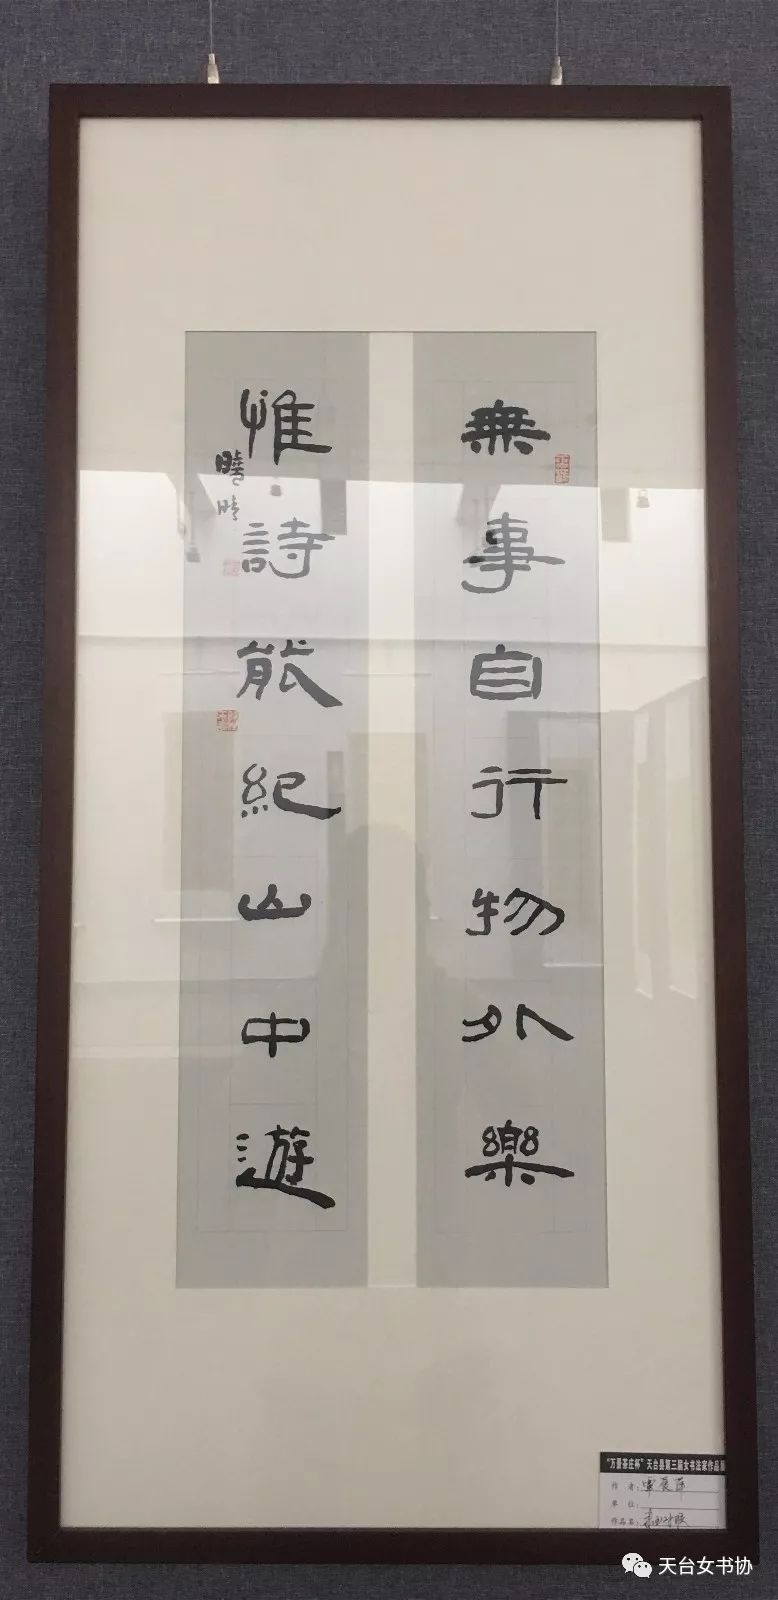 無事自行物外樂
惟詩能紀山中遊
“万景茶庄杯”天台县第三届女书法家作品展
作者：
单位：
作品名：
天台女书协